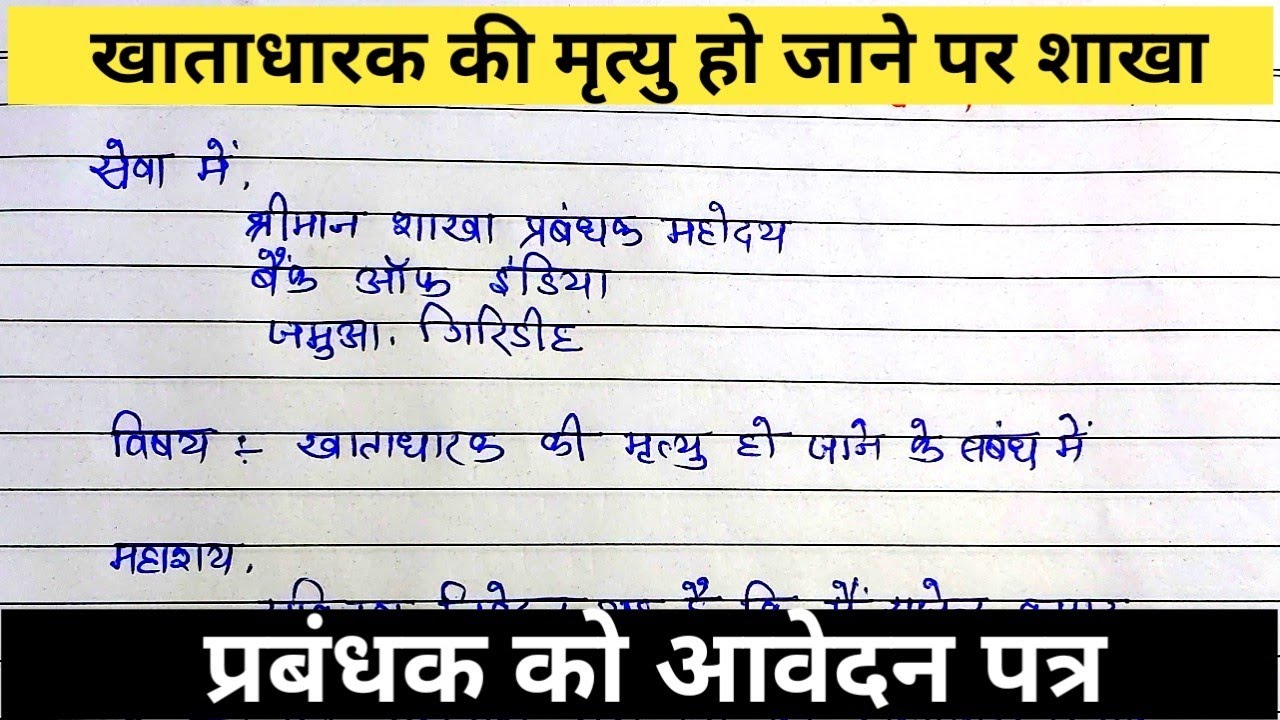 खाताधारक की मृत्यु हो जाने पर शाखा
सेवा में,
श्रीमान शाखा प्रबंधक महोदय
बैंक ऑफ इंडिया
जमुआ. गिरिडीह
विषय :- खाताधारक की मृत्यु हो जाने के सबंध में
महाशय,
प्रबंधक को आवेदन पत्र